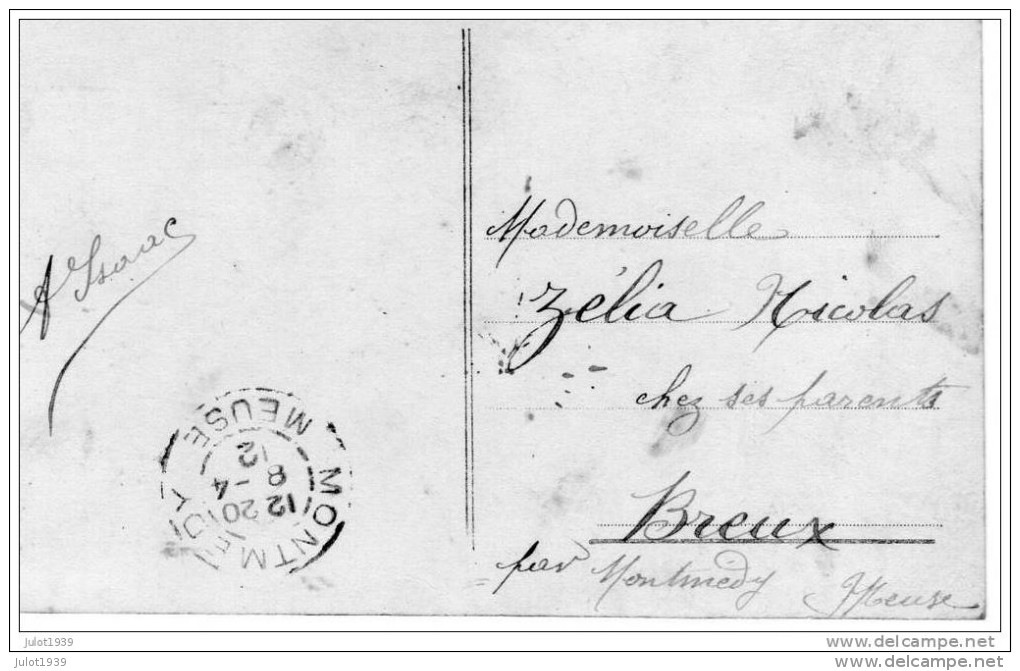 A Isaac
Mademoiselle
Zélia Nicolas
chez ses parents
Breux
par Montmédy Meuse
MONTMEDY
12 20
8 - 4
12
MEUSE
julot1939
julot1939
www.delcampe.net
www.delcampe.net